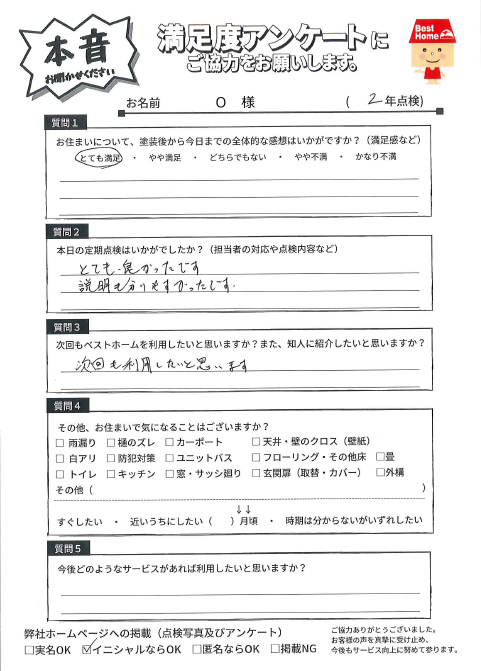 本音
お聞かせください
満足度アンケートに
ご協力をお願いします。
Best Home
お名前 O 様 ( 2 年点検)
質問1
お住まいについて、塗装後から今日までの全体的な感想はいかがですか？（満足感など）
とても満足 ・ やや満足 ・ どちらでもない ・ やや不満 ・ かなり不満
質問2
本日の定期点検はいかがでしたか？（担当者の対応や点検内容など）
とても良かったです
説明も分りやすかったです.
質問3
次回もベストホームを利用したいと思いますか？また、知人に紹介したいと思いますか？
次回も利用したいと思います
質問4
その他、お住まいで気になることはございますか？
□ 雨漏り □ 樋のズレ □ カーポート □ 天井・壁のクロス（壁紙）
□ 白アリ □ 防犯対策 □ ユニットバス □ フローリング・その他床 □畳
□ トイレ □ キッチン □ 窓・サッシ廻り □ 玄関扉（取替・カバー） □外構
その他（ ）
↓↓
すぐしたい ・ 近いうちにしたい（ ）月頃 ・ 時期は分からないがいずれしたい
質問5
今後どのようなサービスがあれば利用したいと思いますか？
弊社ホームページへの掲載（点検写真及びアンケート）
□実名OK ☑イニシャルならOK □匿名ならOK □掲載NG
ご協力ありがとうございました。
お客様の声を真摯に受け止め、
今後もサービス向上に努めて参ります。